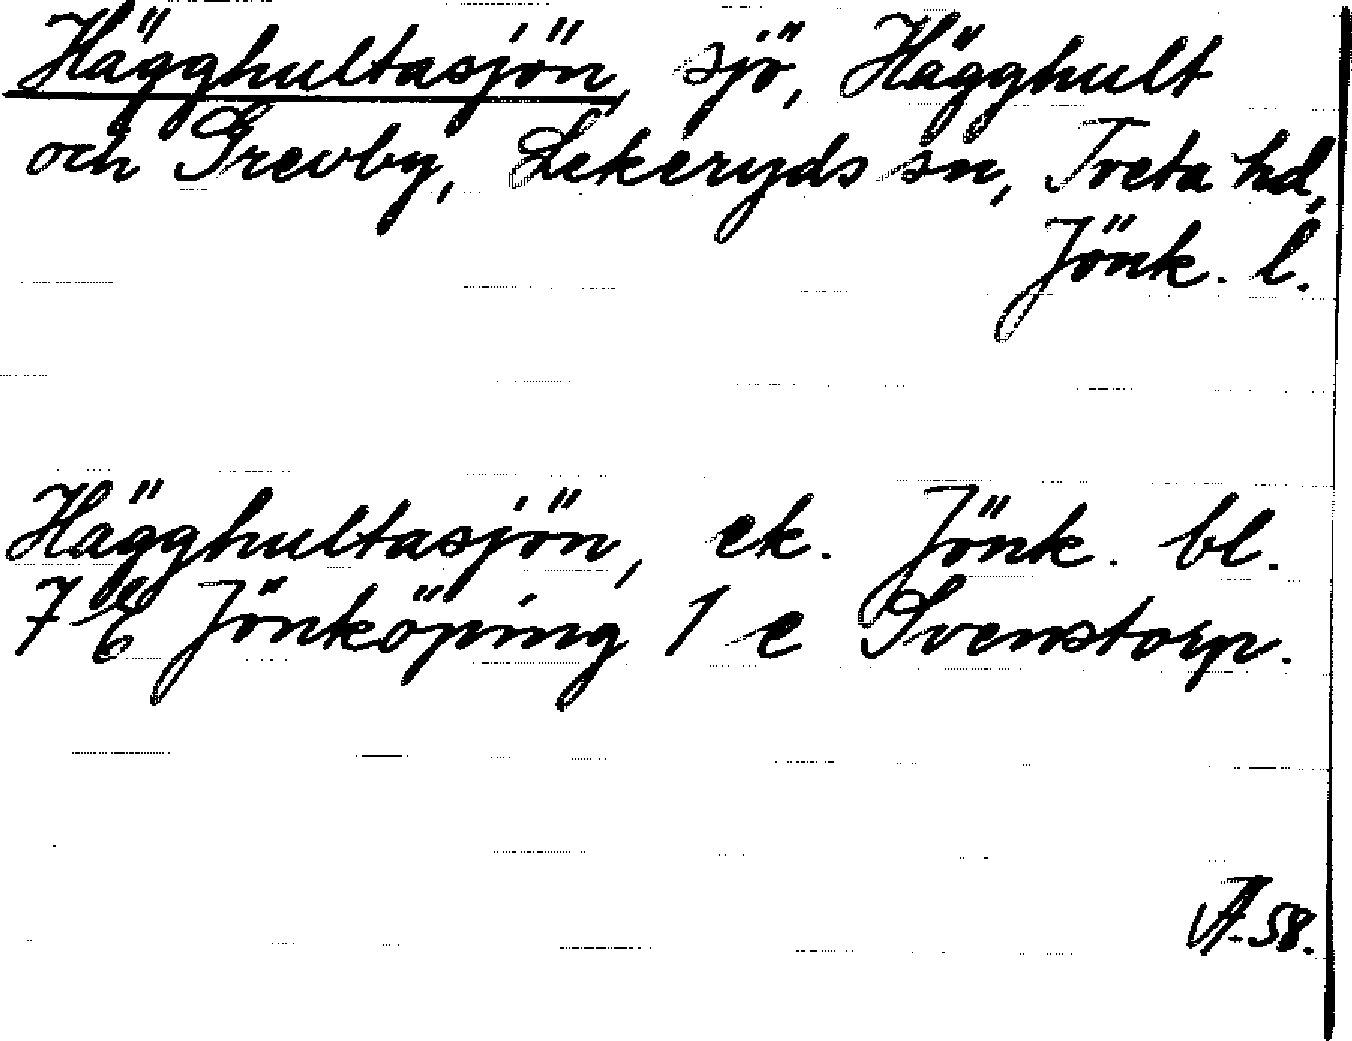 Hägghultasjön, sjö, Hägghult
och Grevby, Lekeryds sn, Tveta hd,
Jönk. l.
Hägghultasjön, ek. Jönk. bl.
7 E Jönköping 1 e Svenstorp.
58.